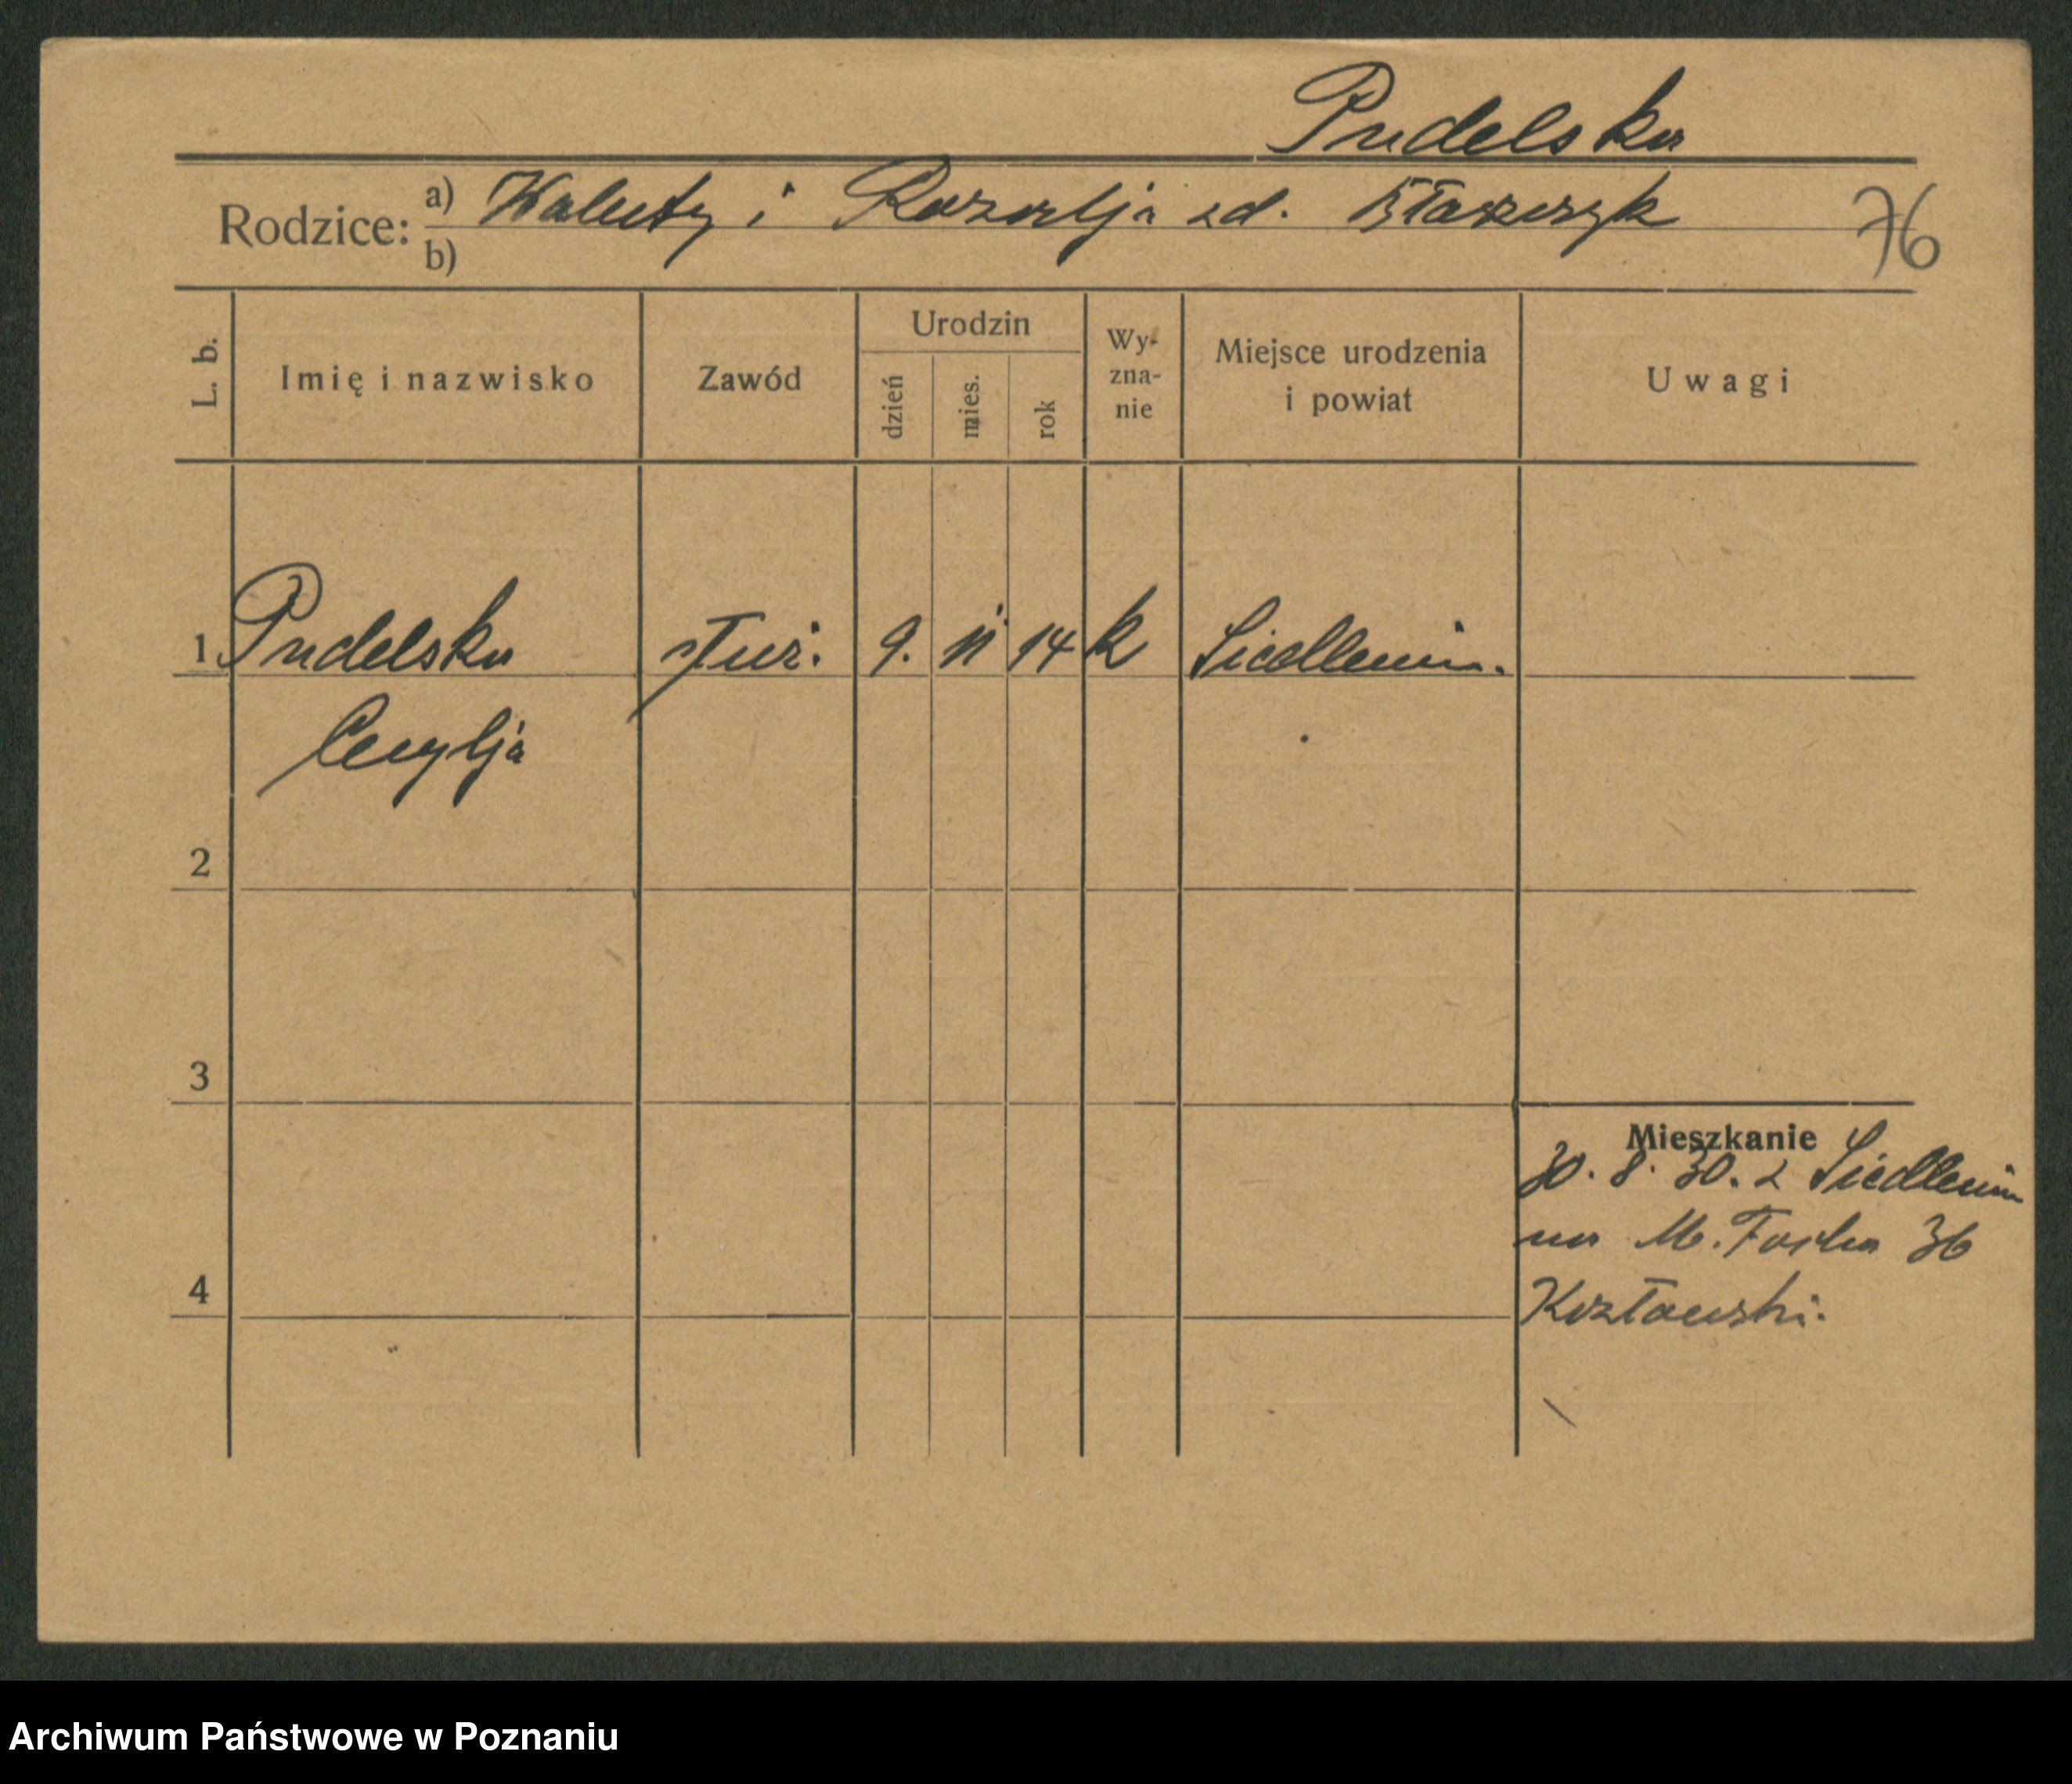 Pudelska
Rodzice: a) Walenty i Rozalja zd. Błaszczyk
b)
76
L. b.
Imię i nazwisko
Zawód
Urodzin
dzień
mies.
rok
Wy-
zna-
nie
Miejsce urodzenia
i powiat
Uwagi
1 Pudelska służ. 9. 11 14 k Siedlemin.
Cecylja
2
3
4
Mieszkanie
30. 8. 30. z Siedlemin
na M. Focha 36
Kozłowski.
Archiwum Państwowe w Poznaniu